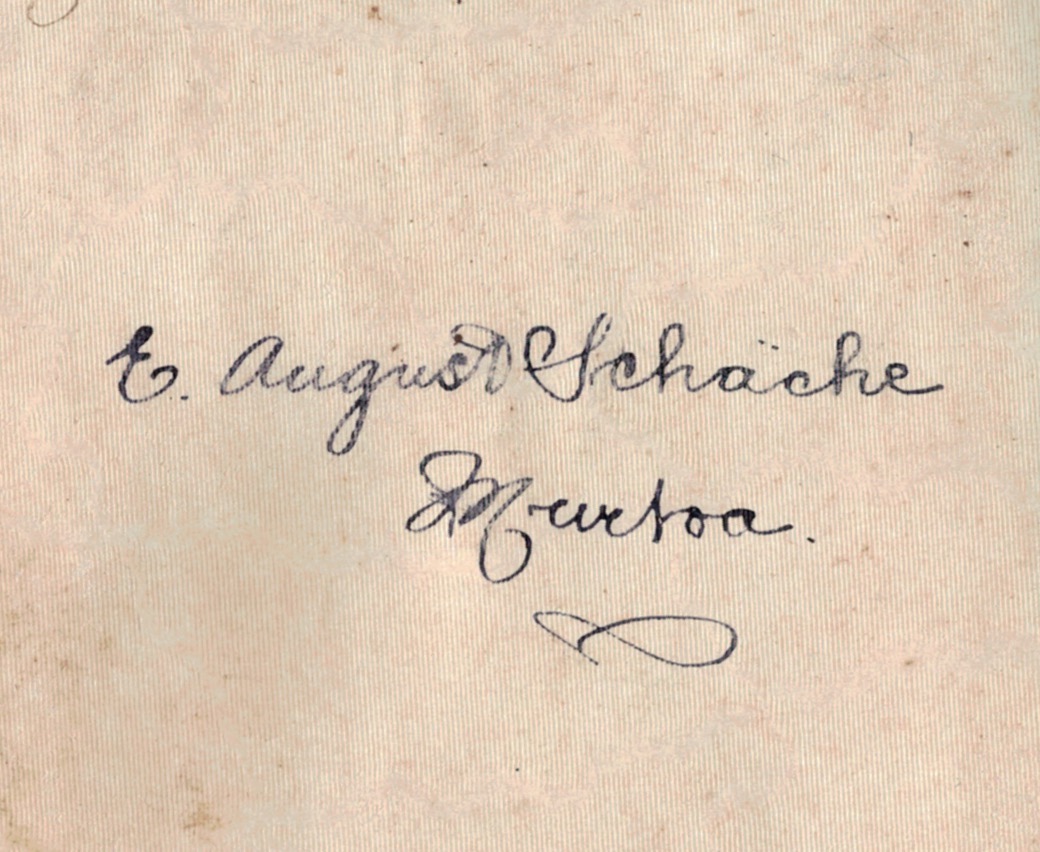 E. August Schäche
Murtoa.